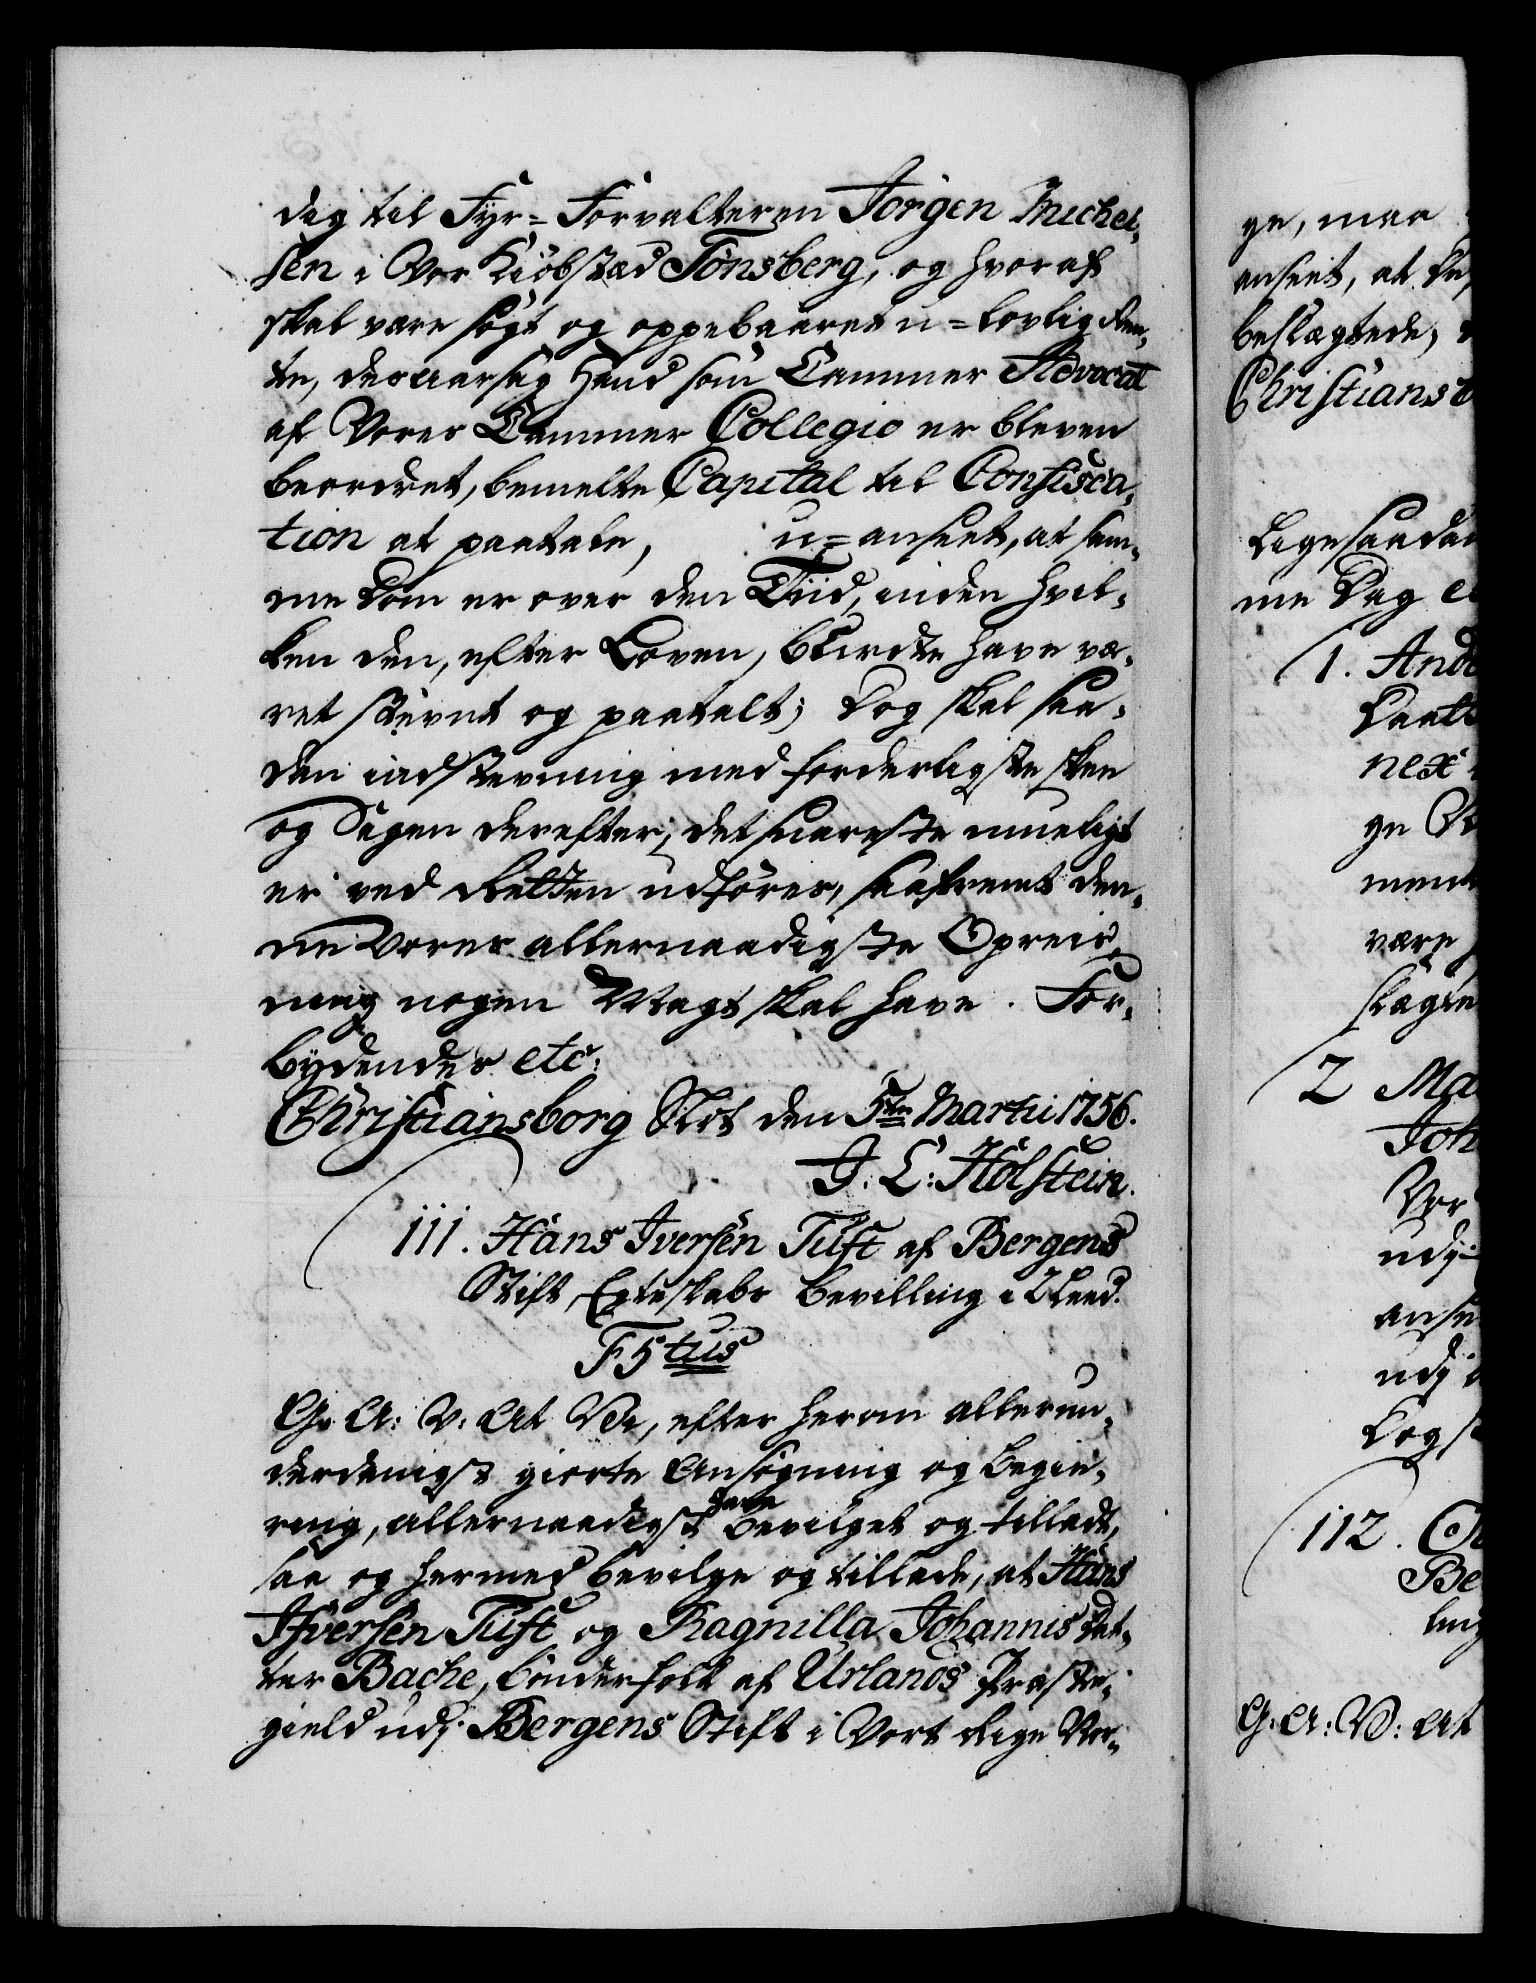 dig til Fyr=Forvalteren Jørgen Michel-
sen i Vor Kiøbstæd Tønsberg, og hvoraf
skal være søgt og oppebaaret u=lovlig Ren-
te, desaarsag Hand som Cammer Advocat
af Vores Cammer Collegio er bleven
beordret, bemelte Capital til Confisca-
tion at paatale, u=anseet, at sam-
me Dom er over den Tiid, inden hvil-
ken den, efter Loven, burdte have væ-
ret stevnt og paatalt; Dog skal saa-
dan indstevning med forderligste skee
og Sagen derefter, det snareste mueligt
er ved Retten udføres, saafremt den-
ne Vores allernaadigste Opreis-
ning nogen Magt skal have. For-
bydendes etc:
Christiansborg Slot den 5ten Martii 1756.
J. L: Holstein.
111. Hans Iversen Tuft af Bergens
Stift Egteskabs Bevilling i 2 Leed.
F 5tus
G: A: V: At Vi, efter herom allerun-
derdanigst giorte Ansøgning og begie-
ring, allernaadigst have bevilget og tilladt,
saa og hermed bevilge og tillade, at Hans
Ifversen Tuft og Ragnilla Johannis Dat-
ter Bache, bønderfolk af Urlands Præste-
gield udj Bergens Stift i Vort Rige Nor-
ge, maa
anseet, at de
beslægtede;
Christiansb
Ligesaadan
me Dag e
1. And
Daatt
nex
ge
ment
være
slægte
2 Ma
Joh
Vor
udj
anse
udj
Dog s
112. 
Be
ling
G: A: V: At